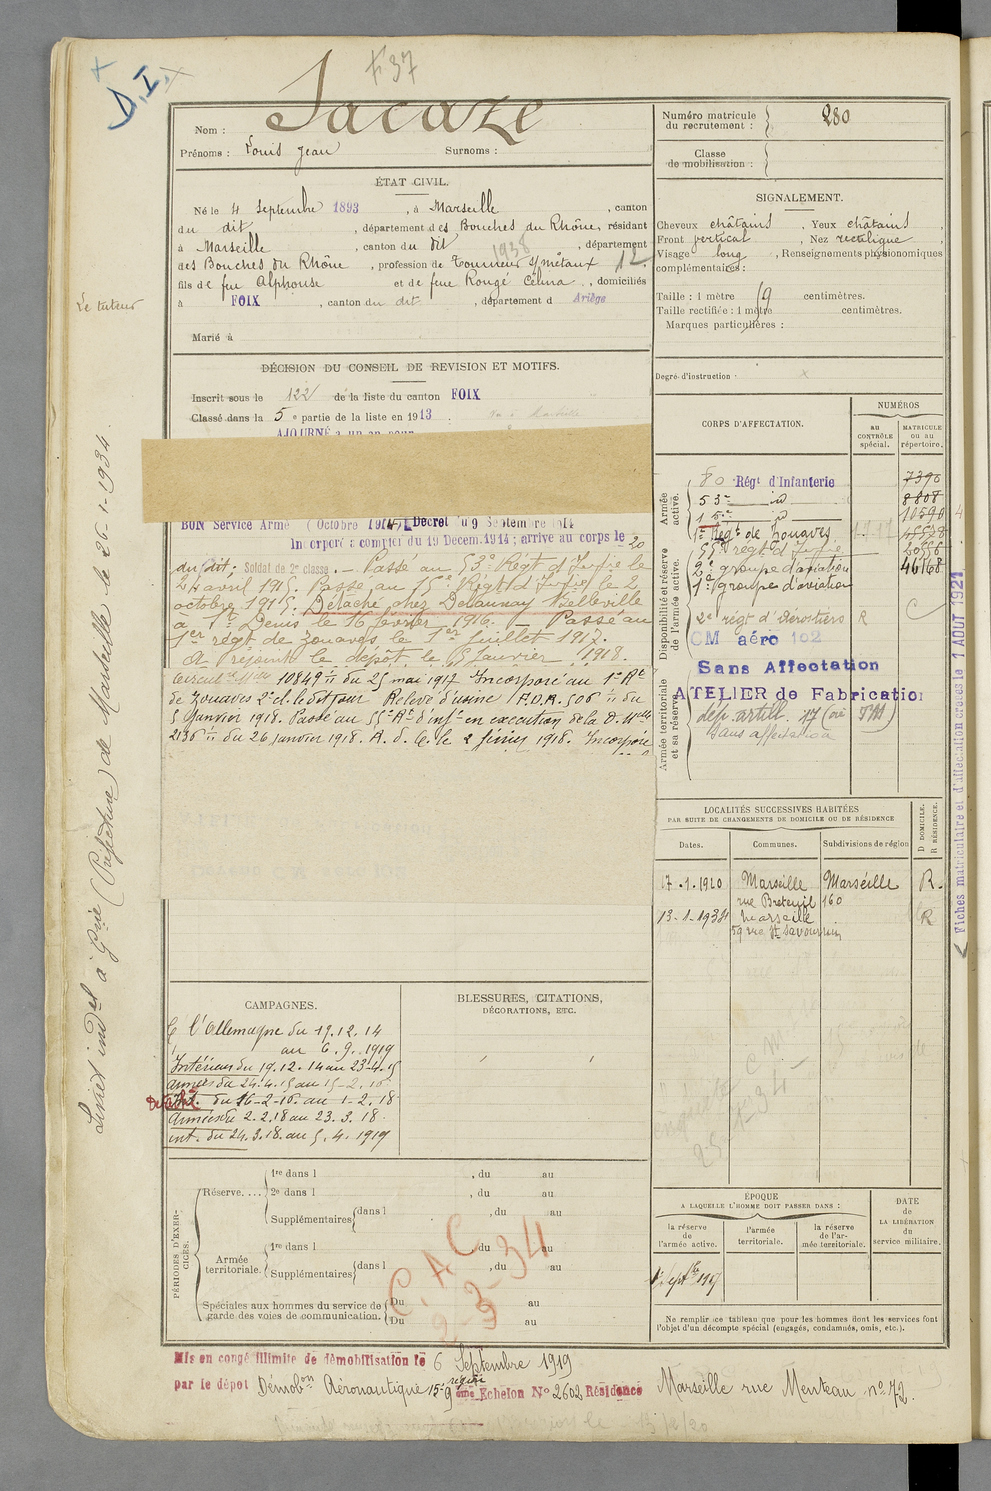 F 37
D.I.
Nom : Sacaze
Prénoms : Louis Jean Surnoms :
Numéro matricule du recrutement : 280
Classe de mobilisation :
ÉTAT CIVIL.
Né le 4 Septembre 1893, à Marseille, canton
du dit, département des Bouches du Rhône, résidant
à Marseille, canton du dit, département
des Bouches du Rhône, profession de Tourneur s/métaux 12
1938
fils de feu Alphonse et de feue Rougé Célina, domiciliés
à FOIX, canton du dit, département d Ariège
Marié à
Le tuteur
SIGNALEMENT.
Cheveux châtains, Yeux châtains,
Front vertical, Nez rectiligne,
Visage long, Renseignements physionomiques
complémentaires :
Taille : 1 mètre centimètres.
Taille rectifiée : 1 mètre centimètres.
Marques particulières :
Degré d'instruction : x
DÉCISION DU CONSEIL DE REVISION ET MOTIFS.
Inscrit sous le 122 de la liste du canton FOIX
Classé dans la 5e partie de la liste en 1913.
AJOURNÉ à un an pour
BON Service Armé (Octobre 1914) Décret du 9 Septembre 1914
Incorporé à compter du 19 Decem. 1914 ; arrivé au corps le 20
du dit ; Soldat de 2e classe. — Passé au 53e Régt d'Infrie le
24 avril 1915. Passé au 15e Régt d'Infie le 2
octobre 1915. Détaché chez Delaunay Belleville
à St Denis le 16 février 1916. — Passé au
1er régt de zouaves le 1er juillet 1917.
A rejoint le dépôt le 5 Janvier 1918.
Circul. Mlle 10849 du 25 mai 1917 Incorporé au 1er Rt
de Zouaves 2e cl. le dit jour Relevé d'usine P.D.R. 506 du
5 Janvier 1918. Passé au 55e Rt d'inf. en exécution de la D. Mlle
2136 du 26 janvier 1918. A. d. C. le 2 février 1918. Incorporé
CORPS D'AFFECTATION.
NUMÉROS
au CONTRÔLE spécial.
MATRICULE ou au répertoire.
Armée active.
80 Régt d'Infanterie 7396
53e id 8808
15e id 11590
1er Régt de Zouaves 15578
55e régt d'Infrie 20556
2e groupe d'aviation 46168
1er groupe d'aviation
Disponibilité et réserve de l'armée active.
2e régt d'Aérostiers R C
CM aéro 102
Sans Affectation
ATELIER de Fabrication
Armée territoriale et sa réserve.
dép. artill. 17
Sans affectation
LOCALITÉS SUCCESSIVES HABITÉES
PAR SUITE DE CHANGEMENTS DE DOMICILE OU DE RÉSIDENCE
Dates. Communes. Subdivisions de région D DOMICILE. R RÉSIDENCE.
17.1.1920 Marseille Marseille R.
rue Breteuil 160
13-1-1934 Marseille R
59 rue St Savournin
Fiches matriculaire et d'affectation créées le 1 AOUT 1921
Livret indel à Gnie (Préfecture) de Marseille le 26-1-1934.
CAMPAGNES.
C. l'Allemagne du 19.12.14
au 6.9.1919
Intérieur du 19.12.14 au 23-4.15
Armées du 24.4.15 au 15-2.16
Détaché Int. du 16-2-16. au 1-2.18
Armées du 2.2.18 au 23.3.18
int. du 24.3.18. au 5.4.1919
BLESSURES, CITATIONS,
DÉCORATIONS, ETC.
PÉRIODES D'EXERCICES.
Réserve.... 1re dans l , du au
2e dans l , du au
Supplémentaires dans l , du au
Armée territoriale. 1re dans l , du au
Supplémentaires dans l , du au
Spéciales aux hommes du service de garde des voies de communication. Du au
Du au
C.A.C
ÉPOQUE
A LAQUELLE L'HOMME DOIT PASSER DANS :
la réserve de l'armée active.
l'armée territoriale.
la réserve de l'armée territoriale.
DATE DE LA LIBÉRATION du service militaire.
Ne remplir ce tableau que pour les hommes dont les services font
l'objet d'un décompte spécial (engagés, condamnés, omis, etc.).
Mis en congé illimité de démobilisation le 6 Septembre 1919
par le dépôt Démobon Aéronautique 15e région
9 ème Echelon No 2602 Résidence Marseille rue Menteau no 72